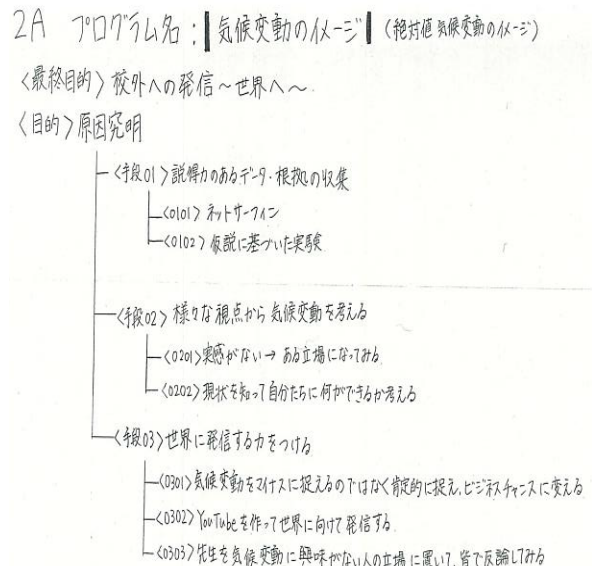 2A プログラム名：|気候変動のイメージ|（絶対値気候変動のイメージ）
〈最終目的〉校外への発信～世界へ～
〈目的〉原因究明
〈手段01〉説得力のあるデータ・根拠の収集
〈0101〉ネットサーフィン
〈0102〉仮説に基づいた実験
〈手段02〉様々な視点から気候変動を考える
〈0201〉実感がない→ある立場になってみる
〈0202〉現状を知って自分たちに何ができるか考える
〈手段03〉世界に発信する力をつける
〈0301〉気候変動をマイナスに捉えるのではなく肯定的に捉え、ビジネスチャンスに変える
〈0302〉YouTubeを作って世界に向けて発信する
〈0303〉先生を気候変動に興味がない人の立場に置いて、皆で反論してみる